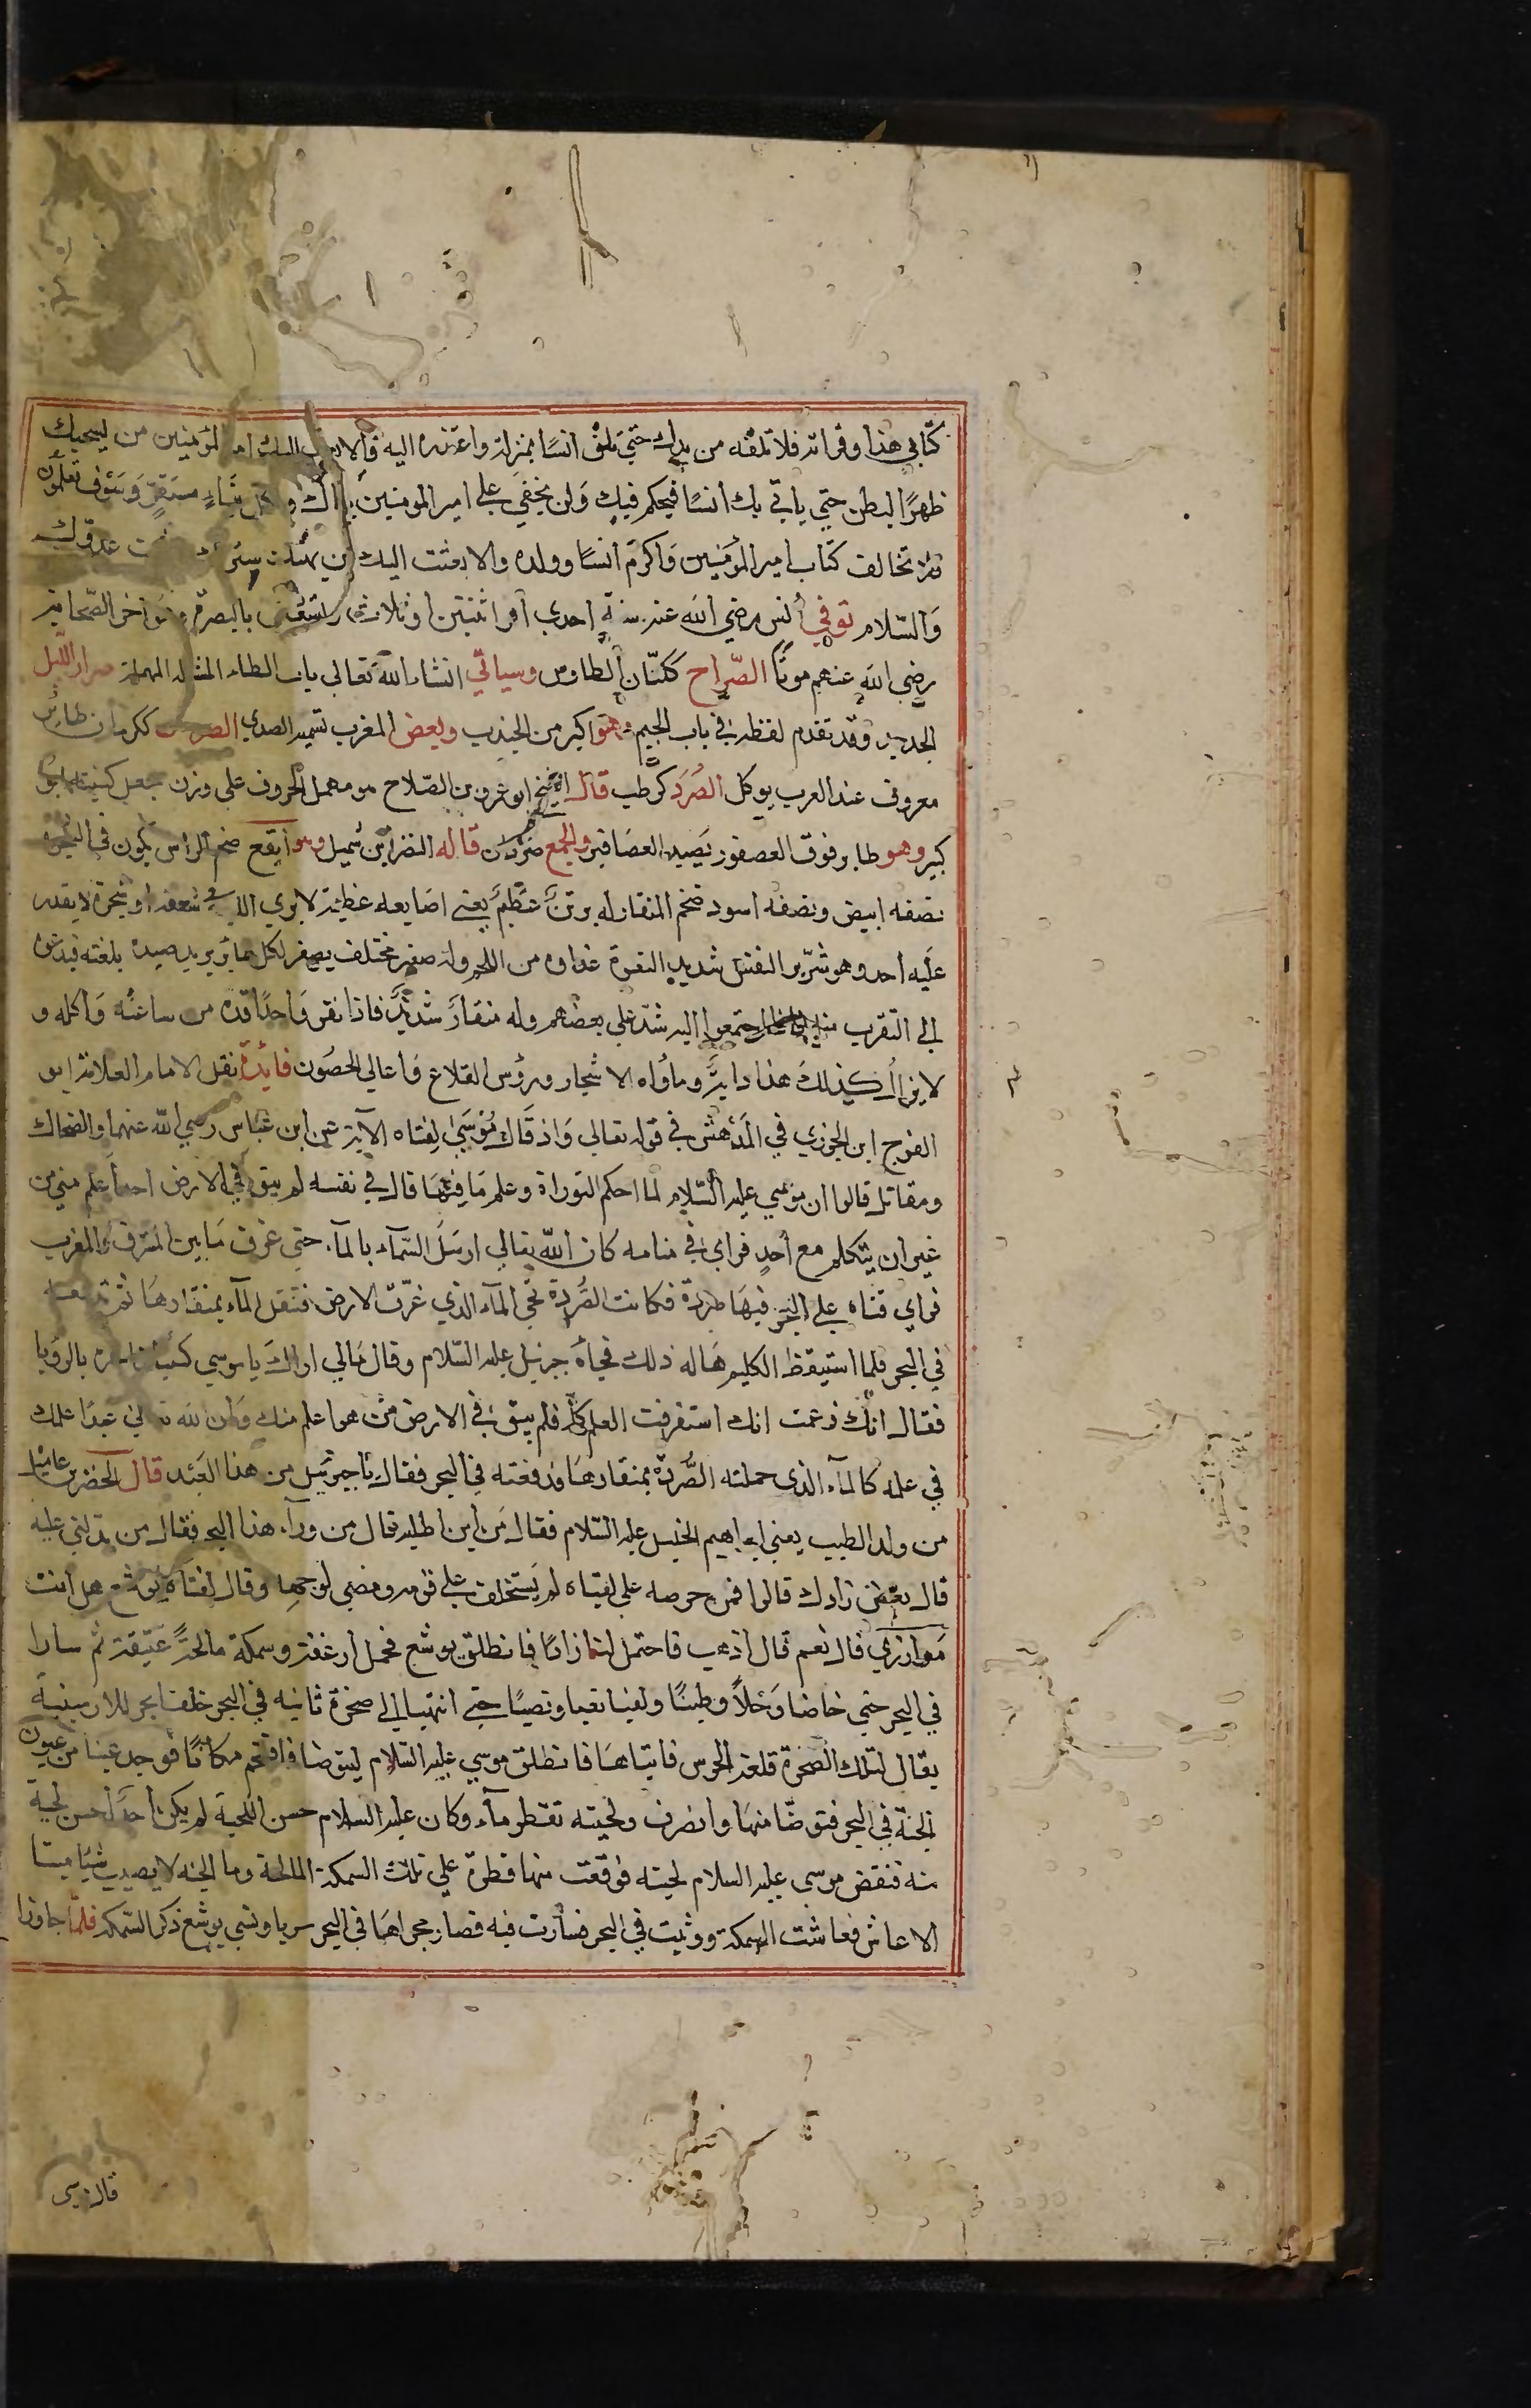 كتابي هذا وقراته فلا تلقه من يدك حتي تلق انسًا بمنزله واعتذر اليه والا بعث اليك امير المؤمنين من يسحبك
ظهرًا لبطن حتي ياتي بك انسًا فيحكم فيك وَلن يخفيَ علي امير المومنين نباك ولكل نباءٍ مستقرّ وَسَوف تعلمون
فلا تخالف كتاب امير المؤمنين وَاكرم انسًا وولده والا بعثت اليك من يهتك سترك ويشمت عدوّك
وَالسّلام توفي أنس رضي الله عنه سنة احدي او اثنتين او ثلاث وتسعين بالبصرة وهو اخر الصّحابة
رضي الله عنهم موتًا الصّراح ككتّان الطاوس وسياتي انشاء الله تعالي باب الطاء المثاله المهملة صرار الليل
الجدجد وقد تقدم لفظه في باب الجيم وهو اكبر من الجندب وبعض المغرب تسميه الصدي الصرصران طائر
معروف عند العرب يوكل الصُرَد كرطب قال الشيخ ابو عمرو بن الصّلاح هو مهمل الحروف علي وزن جعل كنيته ابو
كبير وهو طاير فوق العصفور يَصيد العصَافير والجمع صردان قاله النضر ابن شميل وهو أبقع ضخم الراس يكون في الشجر
نصفه ابيض ونصفه اسود ضخم المنقار له برثنٌ عَظيمٌ يعني اصَابعه عَظيمة لا يري الا في شعفة او شجرة لا يقدر
علَيه احد وهو شرّير النفس شديد النفرة غذاوه من اللحم وله صفير مختلف يصفر لكل طاير يريد صيده بلغته فيدعوه
الي التقرب منه فاذا اجتمعوا اليه شدّ علي بعضهم وله منقار شديدٌ فاذا نقر وَاحدًا قدّه من ساعته وَاكله و
لا يزال كذلك هذا دابُه وماوَاه الاشجار ورؤس القلاع وَاعالي الحصُون فائدة نقل الامام العلامة ابو
الفرج ابن الجوزي في المدهش في قوله تعالي وَاذ قال مُوسَي لِفتاه الآية عن ابن عبّاس رضي الله عنهما والضحاك
ومقاتل قالوا ان موسي عليه السّلام لما احكم التوراة وعلم مَا فيهَا قال في نفسه لم يبق في الارض احد اعلم مني من
غير ان يتكلم مع أحدٍ فراي في منامه كان الله تعالي ارسَل السّمآء بالمآء حتي غرق مَا بين المشرق والمغرب
فراي قناه علي البحر فيهَا صُردة فكانت الصُّردة تجي المآء الذي غرّق الارض فتنقل المآء بمنقارهَا ثم تدفعه
في البحر فلما استيقظ الكليم هَاله ذلك فجاءَه جبريل عليه السّلام وقال مَالي اراك يا موسي كئيبًا فاخبره بالروَيا
فقال انّك زعمت انك استغرقت العلم كله فلم يبق في الارض من هو اعلم منك وَان لله تعالي عبدًا علمك
في علمه كالمآء الذي حملته الصُّردة بمنقارهَا فدفعته في البحر فقال يَا جبرئيل من هذا العَبد قال الخضر بن عاميل
من ولد الطيب يعني ابراهيم الخليل عليه السّلام فقال مَن اين اطلبه قال من ورآء هذا البحر فقال من يدلني عليه
قال بعض زادك قالوا فمن حرصه علي لقياه لم يَستخلف علي قومه ومضي لوجهه وقال لفتاه يوشع هل انت
مَوازري قال نعم قال اذهب فاحتمل لنا زادًا فانطلق يوشع فحمل ارغفة وسمكة مالحَةً عتيقة ثم سارا
في البحر حتي خاضا وَحَلاً وطينًا ولقيا تعبا ونصبًا حتي انتهيا الي صخرة ثانيه في البحر خلف بحر للارمينيه
يقال لتلك الصخرة قلعة الحرس فاتياهَا فانطلق موسي عليه السّلام ليتوضا فاقتحم مكانًا فوجد عينا من عيون
الجنّة في البحر فتوضّا منهَا وانصرف ولحيته تقطر مآء وكان عليه السلام حسن اللحية لم يكن أحدٌ أحسن لحية
منه فنفض موسي عليه السلام لحيته فوقعت منها قطرة علي تلك السمكة المالحة وما الجنه لا يصيب شيًا ميتا
الا عاش فعاشت السمكة ووثبت في البحر فسارت فيه فصار مجراهَا في البحر سربا ونسي يوشع ذكر السّمكه فلمّا جاوزا
قال موسي